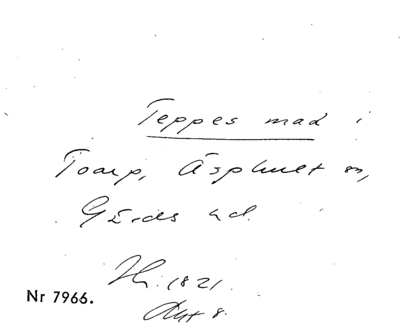 Teppes mad i
Toarp, Äsphult sn,
Gärds hd.
1821.
Akt 8.
Nr 7966.